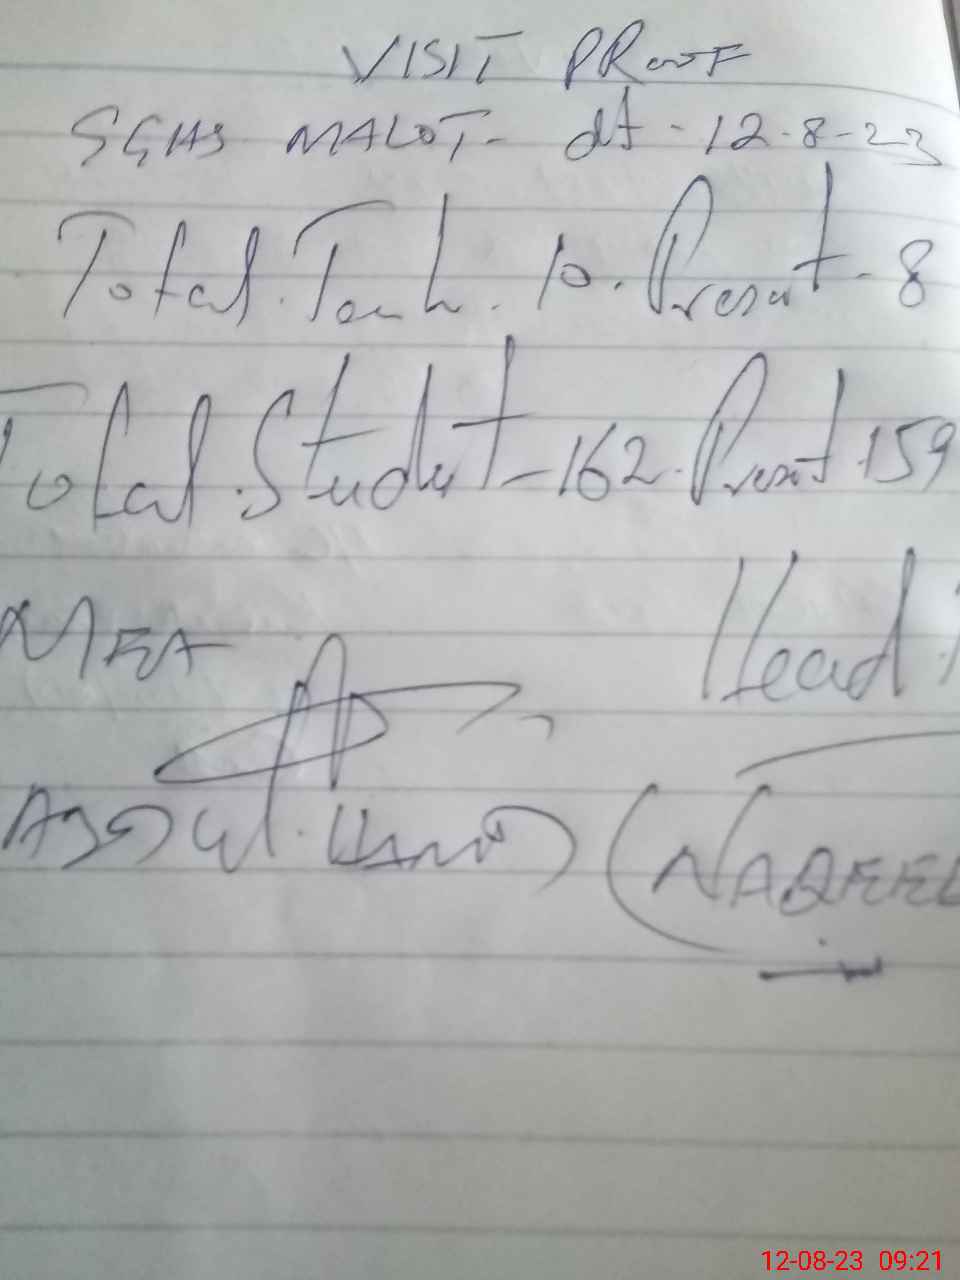 VISIT PRooF
SGHS MALOT - dt - 12-8-23
Total. Teach. 10. Present - 8
Total. Student - 162. Present 159
MEA
Head
Abdul. Hamid (NABEEL
12-08-23 09:21